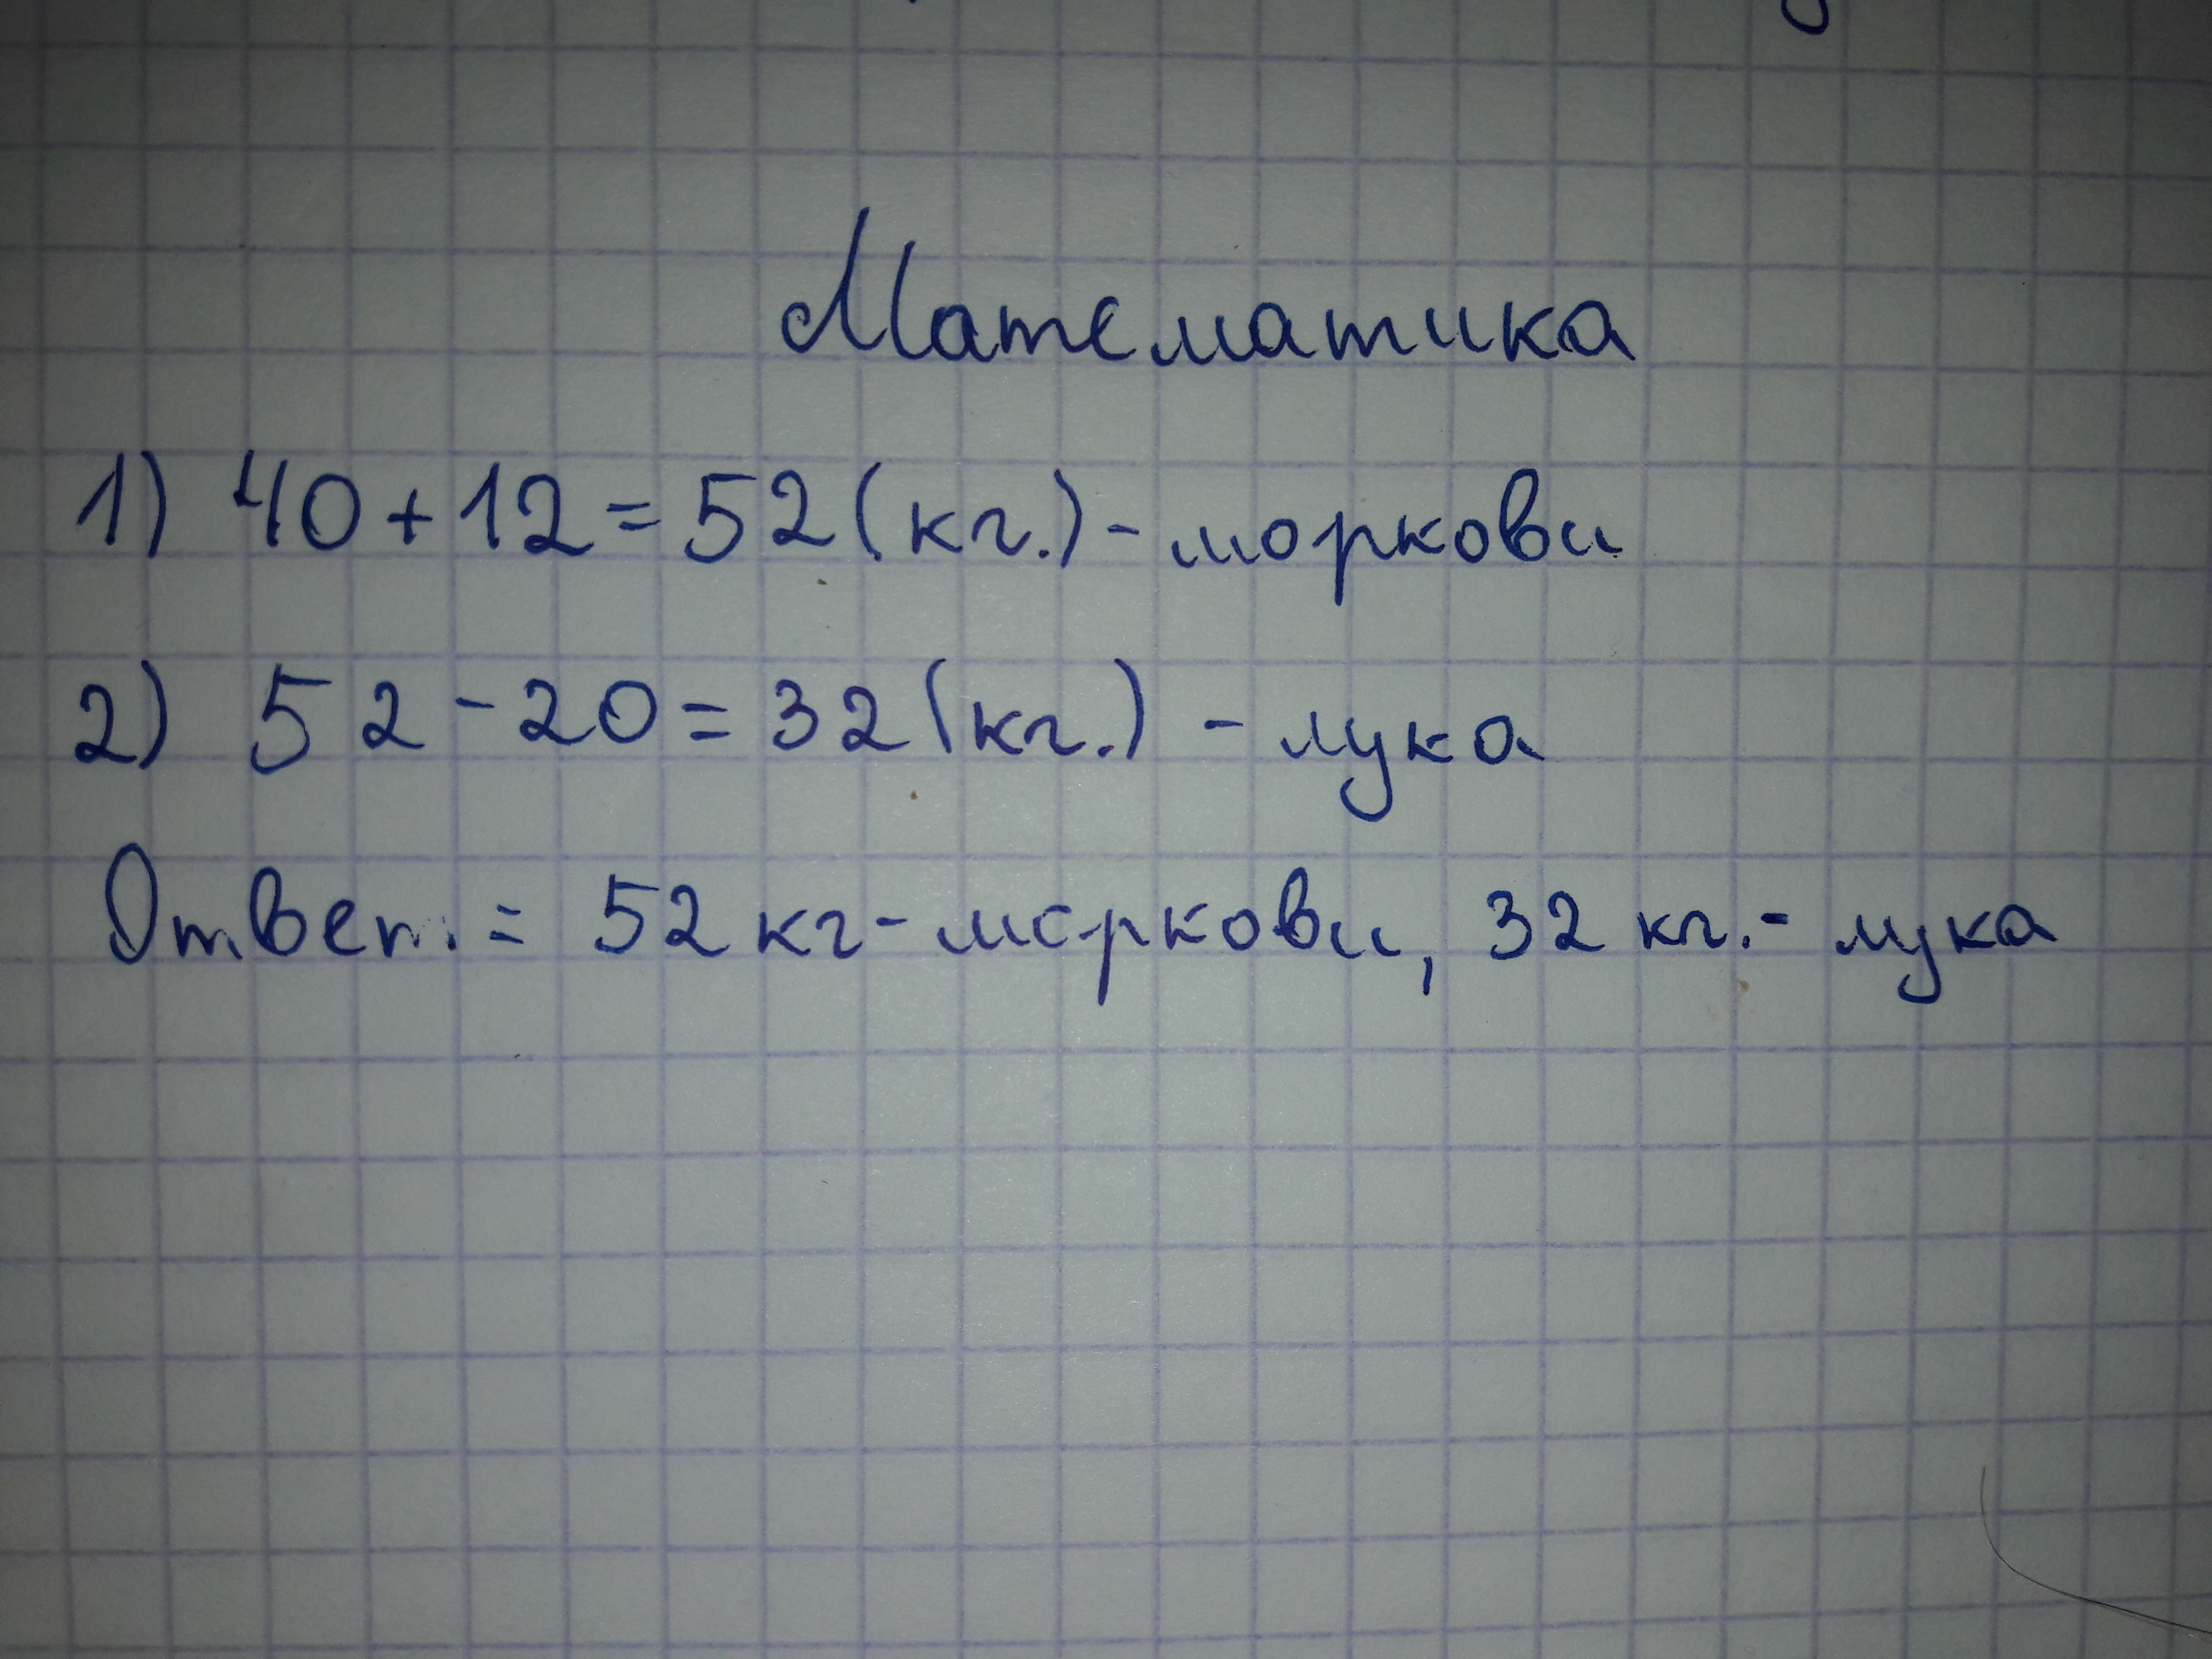 Математика
1) 40+12=52(кг.)-моркови
2) 52-20=32(кг.) -лука
Ответ = 52 кг-моркови, 32 кг.- лука